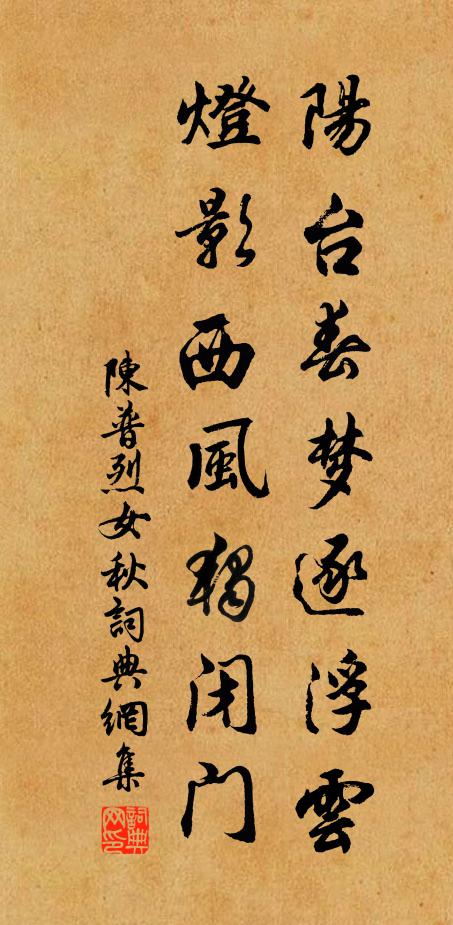 陽台春梦逐浮雲
燈影西風独闭门
陳普烈女秋詞典網集
詞典网印